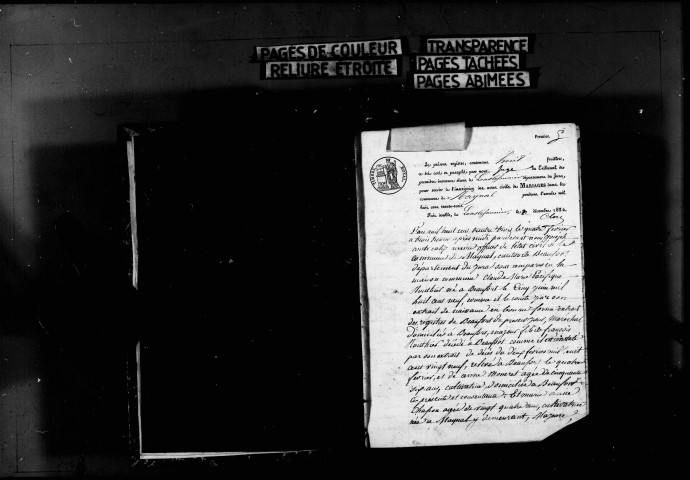 PAGES DE COULEUR
RELIURE ETROITE
TRANSPARENCE
PAGES TACHÉES
PAGES ABIMÉES
Premier
Les présens registres, contenant huit feuillets,
ont été cotés et paraphés par nous, Juge du Tribunal de
première instance de département du Jura,
pour servir de l'inscription des actes civils de MARIAGES dans
commune de Maynal pendant l'année mil
huit cent trente-trois
Fait, double, à le décembre 1832
L'an mil huit cent trente trois le quatre février
à trois heures après midi par devant nous Joseph
maire officier de l'état civil de la
commune de Maynal, canton de Beaufort
département du Jura sont comparus en la
maison commune Claude Marie Pacifique
né à Beaufort le cinq juin mil
huit cent neuf, comme il le conste par son
extrait de naissance en bonne forme extrait
des registres de Beaufort maréchal
domicilié à Beaufort, majeur fils de françois
décédé à Beaufort comme il est constaté
par son extrait de décès du deux février mil huit
cent vingt neuf, relevé à Beaufort le quatre
février, et de anne Monneret agée de cinquante
six ans, cultivatrice domiciliée à Beaufort
ci présente et consentante & Etiennette anne
Chapon agée de vingt quatre ans, cultivatrice
née à Maynal y demeurant, Majeure